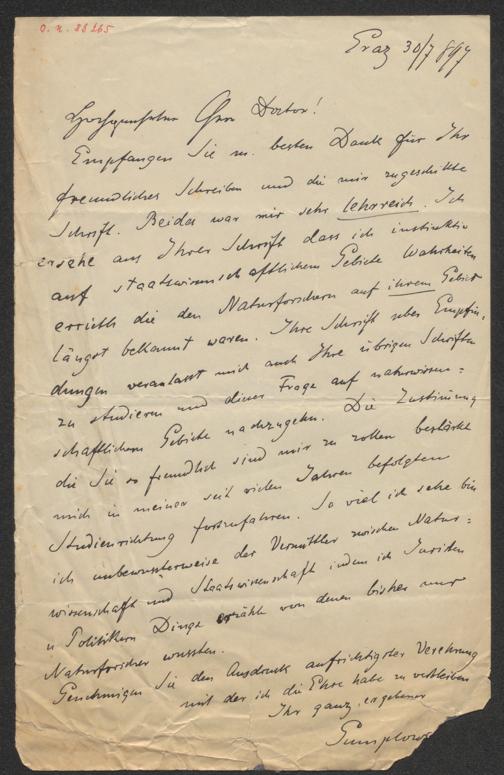 O. N. 88265
Graz 30/7 897
Hochgeehrter Herr Doctor!
Empfangen Sie m. besten Dank für Ihr
freundliches Schreiben und die mir zugeschickte
Schrift. Beides war mir sehr lehrreich. Ich
ersehe aus Ihrer Schrift dass ich instinktiv
auf staatswissenschaftlichem Gebiete Wahrheiten
errieth die den Naturforschern auf ihrem Gebiet
längst bekannt waren. Ihre Schrift über Empfin-
dungen veranlasst mich auch Ihre übrigen Schriften
zu studieren und dieser Frage auf naturwissen-
schaftlichem Gebiete nachzugehen. Die Zustimung
die Sie so freundlich sind mir zu zollen bestärkt
mich in meiner seit vielen Jahren befolgten
Studienrichtung fortzufahren. So viel ich sehe bin
ich unbewussterweise der Vermittler zwischen Natur-
wissenschaft und Staatswissenschaft indem ich Juristen
u Politikern Dinge erzähle von denen bisher nur
Naturforscher wussten.
Genehmigen Sie den Ausdruck aufrichtigster Verehrung
mit der ich die Ehre habe zu verbleiben
Ihr ganz ergebener
Gumplowicz